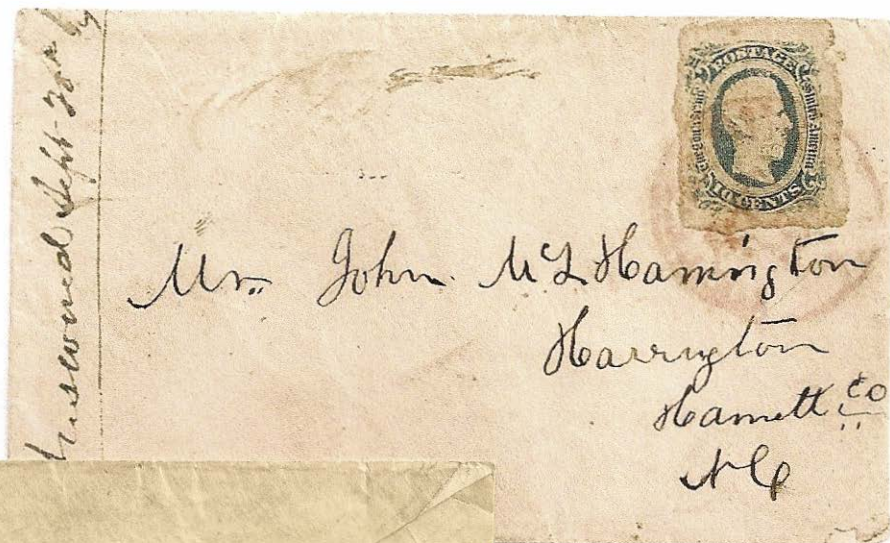 Answered Sept 28th
POSTAGE
Confederate States America
TEN CENTS
Mr. John McL Harrington
Harrington
Harnett Co
NC